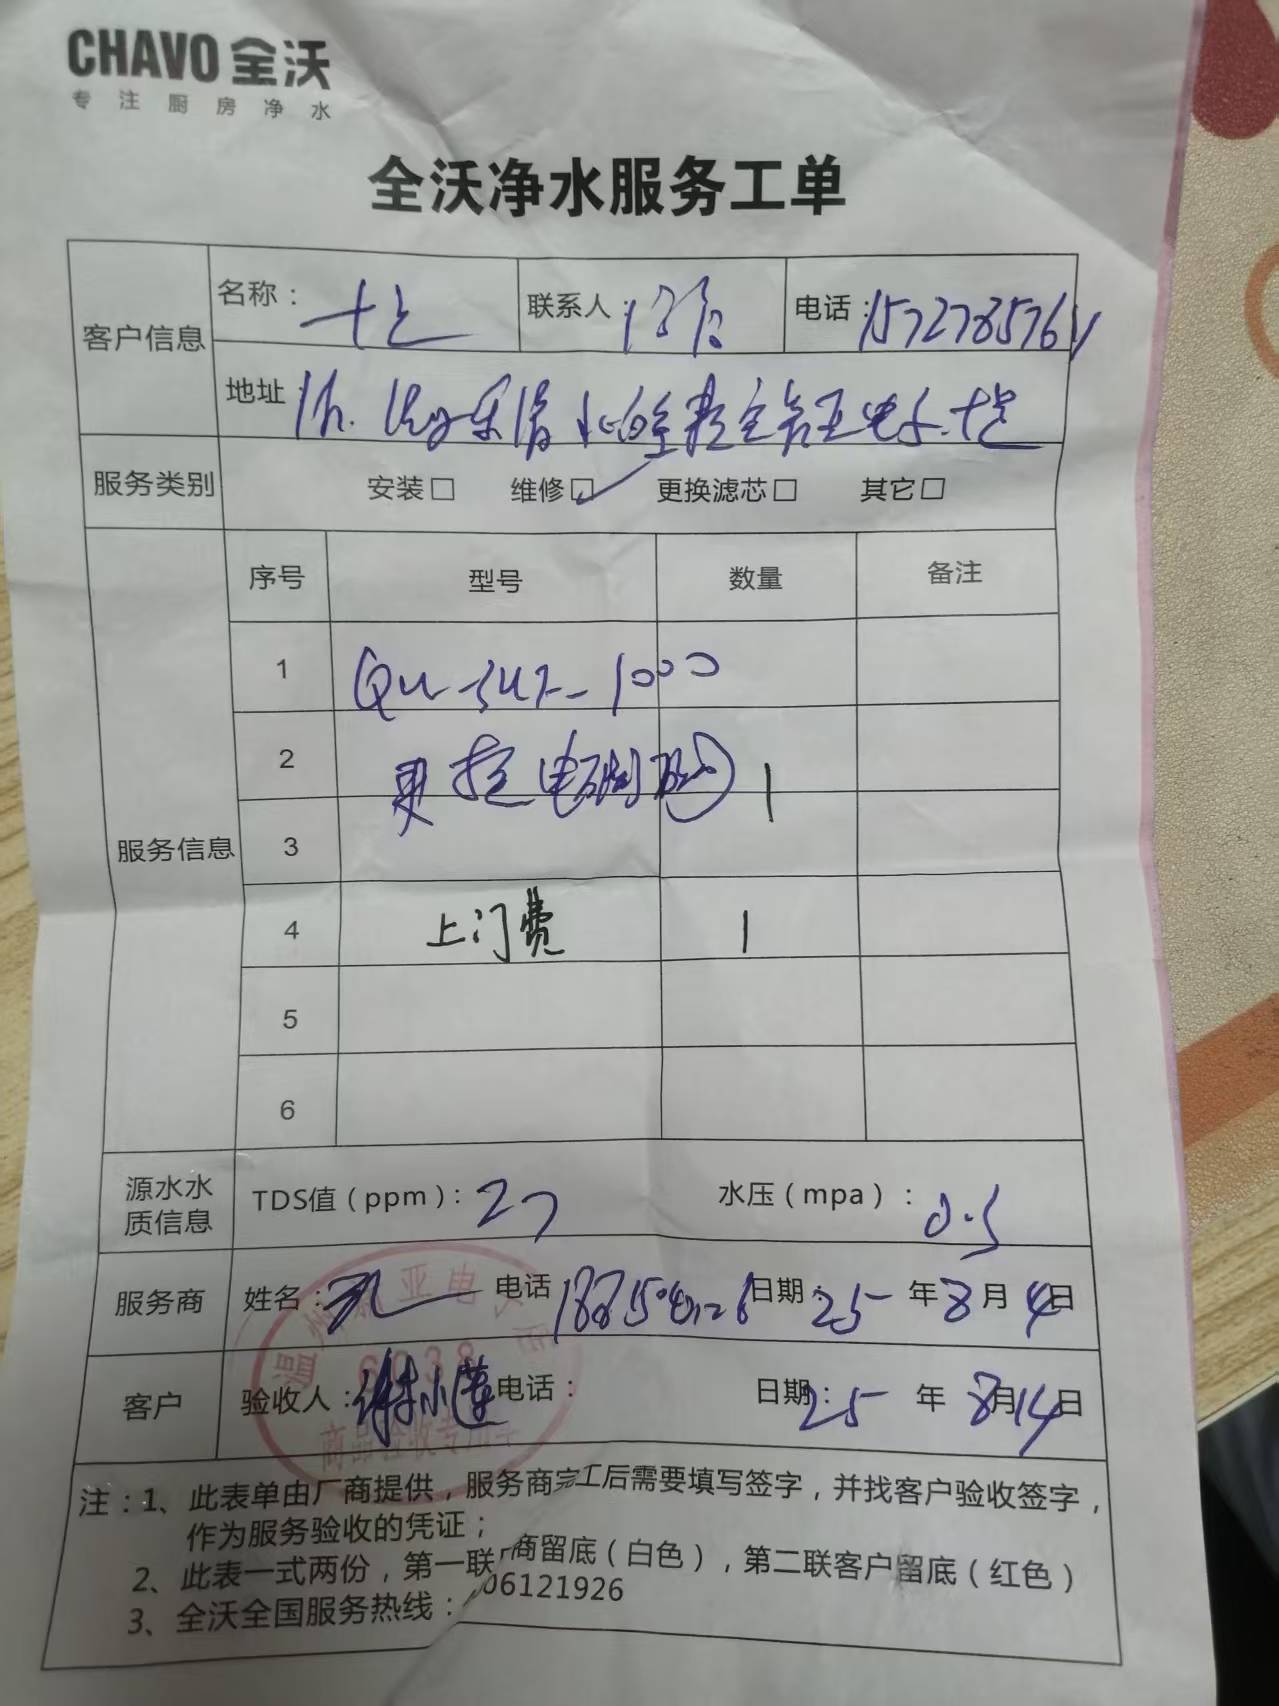 CHAVO 全沃
专注厨房净水
全沃净水服务工单
客户信息
名称：
联系人：
电话：
地址
服务类别 安装□ 维修□ 更换滤芯□ 其它□
服务信息
序号 型号 数量 备注
1
2 更换电磁阀 1
3
4 上门费 1
5
6
源水水质信息 TDS值（ppm）：27 水压（mpa）：0.5
服务商 姓名：孔 电话 日期：25年8月4日
客户 验收人：谢小莲 电话： 日期：25年8月14日
商品验收专用章
注：1、此表单由厂商提供，服务商完工后需要填写签字，并找客户验收签字，
作为服务验收的凭证；
2、此表一式两份，第一联厂商留底（白色），第二联客户留底（红色）
3、全沃全国服务热线：06121926